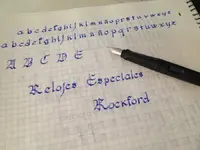 a b c d e f g h i j k l m n ñ o p q r s t u v w x y z
a b c d e f g h i j k l m n ñ o p q r s t u v w x y z
A B C D E
Relojes Especiales
Rockford